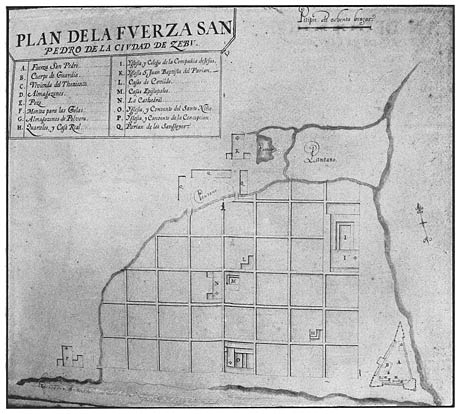 PLAN DE LA FVERZA SAN
PEDRO DE LA CIVDAD DE ZEBV.
A. Fuerza San Pedro.
B. Cuerpo de Guardia.
C. Vivienda del Theniente.
D. Almahazenes.
E. Pozo
G. Almahazenes de Polvora.
H. Quarteles, y Casa Real.
I. Yglesia y Colegio de la Compañia de Jesus.
K. Yglesia S. Juan Baptista del Parian.
L. Casas de Cavildo.
M. Casas Episcopales.
N. La Cathedral.
O. Yglesia, y Convento del Santo Niño.
P. Yglesia, y Convento de la Concepcion.
Q. Parian de los Sangleyes.
Pantano
I
L
N
M
O
P
A